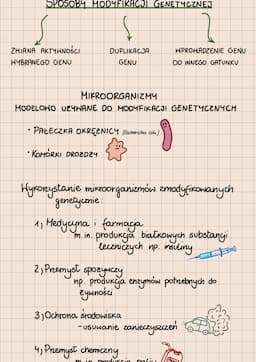 SPOSOBY MODYFIKACJI GENETYCZNEJ
ZMIANA AKTYWNOŚCI WYBRANEGO GENU
DUPLIKACJA GENU
WPROWADZENIE GENU DO INNEGO GATUNKU
MIKROORGANIZMY
MODELOWO UŻYWANE DO MODYFIKACJI GENETYCZNYCH
• PAŁECZKA OKRĘŻNICY (Escherichia coli)
• KOMÓRKI DROŻDŻY
Wykorzystanie mikroorganizmów zmodyfikowanych
genetycznie:
1) Medycyna i farmacja
m.in. produkcja białkowych substancji
leczniczych np. insuliny
2) Przemysł spożywczy
np. produkcja enzymów potrzebnych do
żywności
3) Ochrona środowiska
- usuwanie zanieczyszczeń
4) Przemysł chemiczny
m.in. produkcja